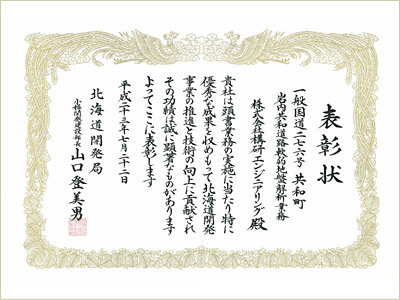 表彰状
一般国道二七六号 共和町
岩内共和道路軟弱地盤解析業務
株式会社構研エンジニアリング殿
貴社は頭書業務の実施に当たり特に
優秀な成果を収めもって北海道開発
事業の推進と技術の向上に貢献され
その功績は誠に顕著なものがあります
よってここに表彰します
平成二十三年七月二十二日
北海道開発局
小樽開発建設部長 山口登美男